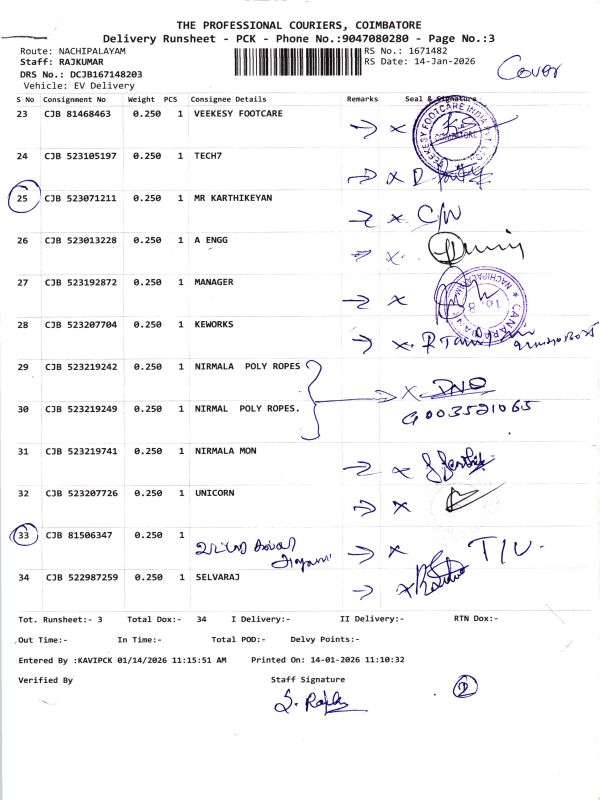 THE PROFESSIONAL COURIERS, COIMBATORE
Delivery Runsheet - PCK - Phone No.:9047080280 - Page No.:3
Route: NACHIPALAYAM RS No.: 1671482
Staff: RAJKUMAR RS Date: 14-Jan-2026
Cover
DRS No.: DCJB167148203
Vehicle: EV Delivery
S No Consignment No Weight PCS Consignee Details Remarks Seal & Signature
23 CJB 81468463 0.250 1 VEEKESY FOOTCARE x
VEEKESY FOOTCARE INDIA
COIMBATORE
24 CJB 523105197 0.250 1 TECH7 x
25 CJB 523071211 0.250 1 MR KARTHIKEYAN x C/W
26 CJB 523013228 0.250 1 A ENGG x
27 CJB 523192872 0.250 1 MANAGER x
NACHIPALAYAM
28 CJB 523207704 0.250 1 KEWORKS x
29 CJB 523219242 0.250 1 NIRMALA POLY ROPES x
30 CJB 523219249 0.250 1 NIRMAL POLY ROPES.
31 CJB 523219741 0.250 1 NIRMALA MON x
32 CJB 523207726 0.250 1 UNICORN x
33 CJB 81506347 0.250 1 x T/U.
34 CJB 522987259 0.250 1 SELVARAJ x
Tot. Runsheet:- 3 Total Dox:- 34 I Delivery:- II Delivery:- RTN Dox:-
Out Time:- In Time:- Total POD:- Delvy Points:-
Entered By :KAVIPCK 01/14/2026 11:15:51 AM Printed On: 14-01-2026 11:10:32
Verified By Staff Signature
2